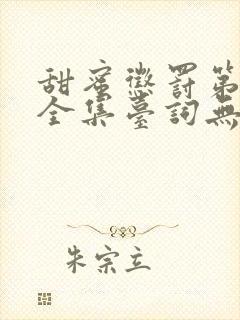 甜蜜懲罰第
全集臺詞無
朱宗立